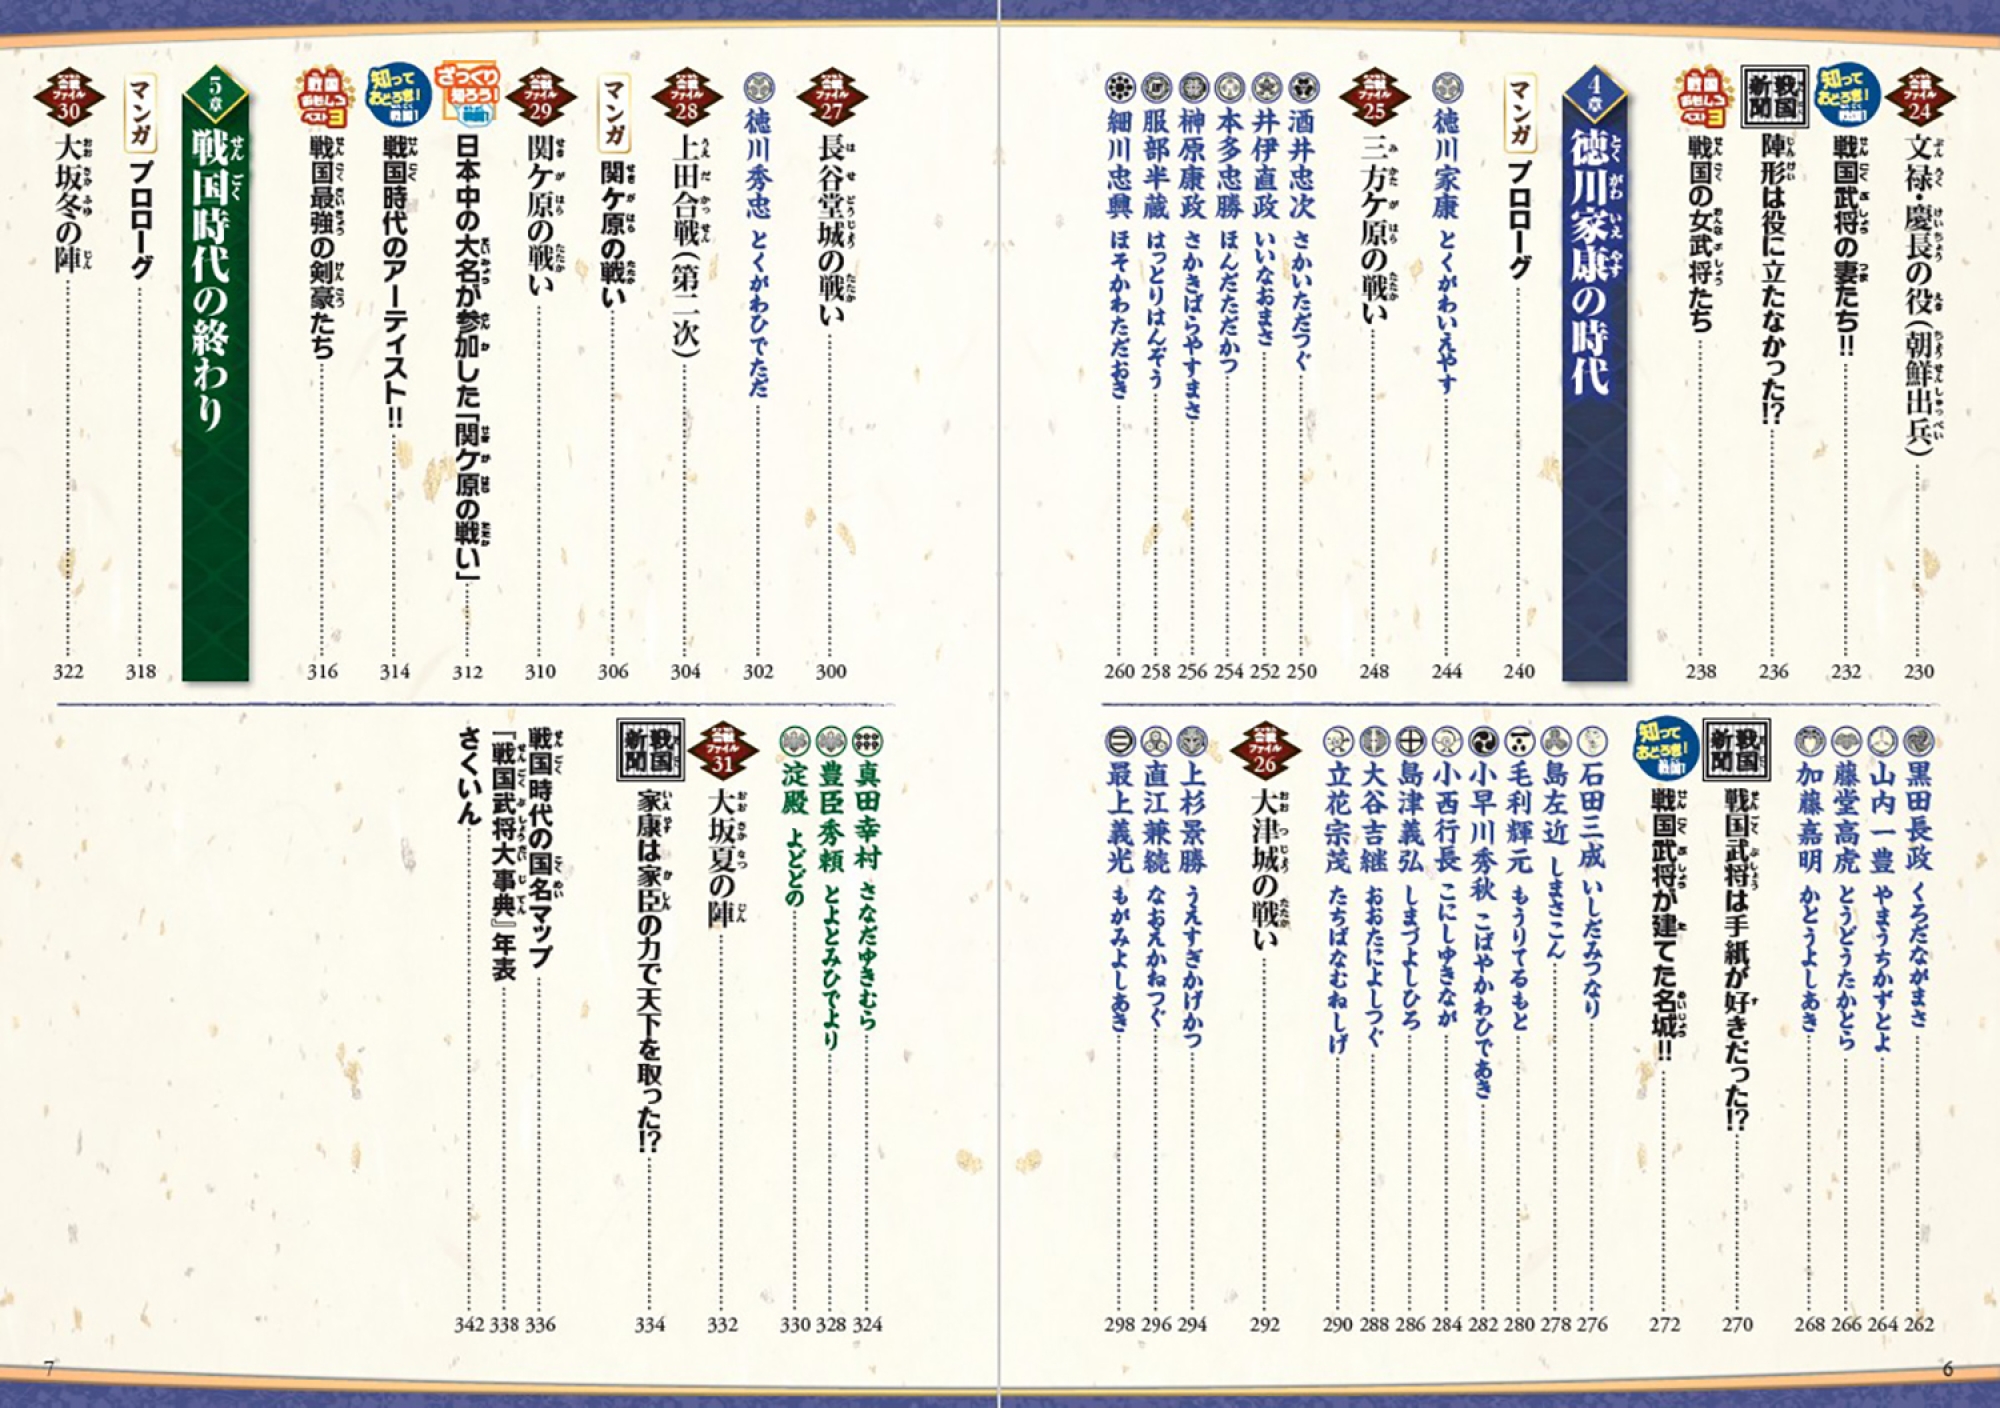 合戦ファイル24 文禄・慶長の役(朝鮮出兵) 230
知っておどろき!戦国! 戦国武将の妻たち!! 232
戦国新聞 陣形は役に立たなかった!? 236
戦国おもしろベスト3 戦国の女武将たち 238
4章 徳川家康の時代
マンガ プロローグ 240
徳川家康 とくがわいえやす 244
合戦ファイル25 三方ケ原の戦い 248
酒井忠次 さかいただつぐ 250
井伊直政 いいなおまさ 252
本多忠勝 ほんだただかつ 254
榊原康政 さかきばらやすまさ 256
服部半蔵 はっとりはんぞう 258
細川忠興 ほそかわただおき 260
黒田長政 くろだながまさ 262
山内一豊 やまうちかずとよ 264
藤堂高虎 とうどうたかとら 266
加藤嘉明 かとうよしあき 268
戦国新聞 戦国武将は手紙が好きだった!? 270
知っておどろき!戦国! 戦国武将が建てた名城!! 272
石田三成 いしだみつなり 276
島左近 しまさこん 278
毛利輝元 もうりてるもと 280
小早川秀秋 こばやかわひであき 282
小西行長 こにしゆきなが 284
島津義弘 しまづよしひろ 286
大谷吉継 おおたによしつぐ 288
立花宗茂 たちばなむねしげ 290
合戦ファイル26 大津城の戦い 292
上杉景勝 うえすぎかげかつ 294
直江兼続 なおえかねつぐ 296
最上義光 もがみよしあき 298
6
合戦ファイル27 長谷堂城の戦い 300
徳川秀忠 とくがわひでただ 302
合戦ファイル28 上田合戦(第二次) 304
マンガ 関ケ原の戦い 306
合戦ファイル29 関ケ原の戦い 310
ざっくり知ろう!戦国! 日本中の大名が参加した「関ケ原の戦い」 312
知っておどろき!戦国! 戦国時代のアーティスト!! 314
戦国おもしろベスト3 戦国最強の剣豪たち 316
5章 戦国時代の終わり
マンガ プロローグ 318
合戦ファイル30 大坂冬の陣 322
真田幸村 さなだゆきむら 324
豊臣秀頼 とよとみひでより 328
淀殿 よどどの 330
合戦ファイル31 大坂夏の陣 332
戦国新聞 家康は家臣の力で天下を取った!? 334
戦国時代の国名マップ 336
『戦国武将大事典』年表 338
さくいん 342
7